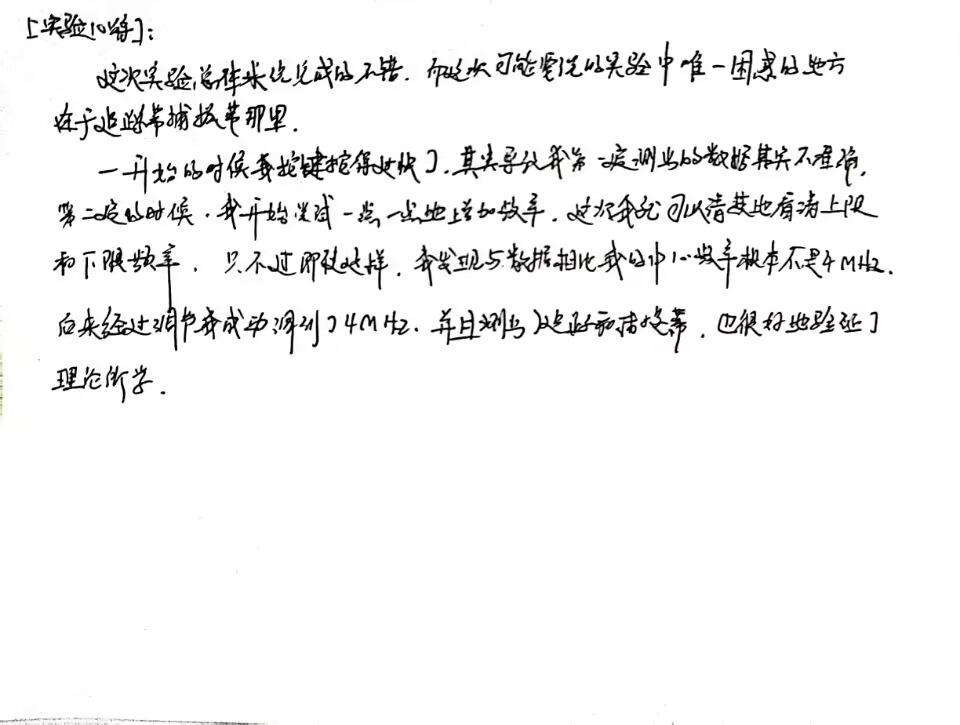 [实验心得]:
这次实验总体来说完成的不错.而这次可能要说的实验中唯一困惑的地方
在于追踪带捕捉带那里.
一开始的时候我按键按得过快了,其实导致我第一次测出的数据其实不准确,
第二次的时候.我开始尝试一点一点地增加频率.这次我就可以清楚地看清上限
和下限频率. 只不过即使这样,我发现与数据相比我的中心频率根本不是4MHz.
后来经过调节我成功调到了4MHz.并且测出 捕捉带,也很好地验证了
理论所学.